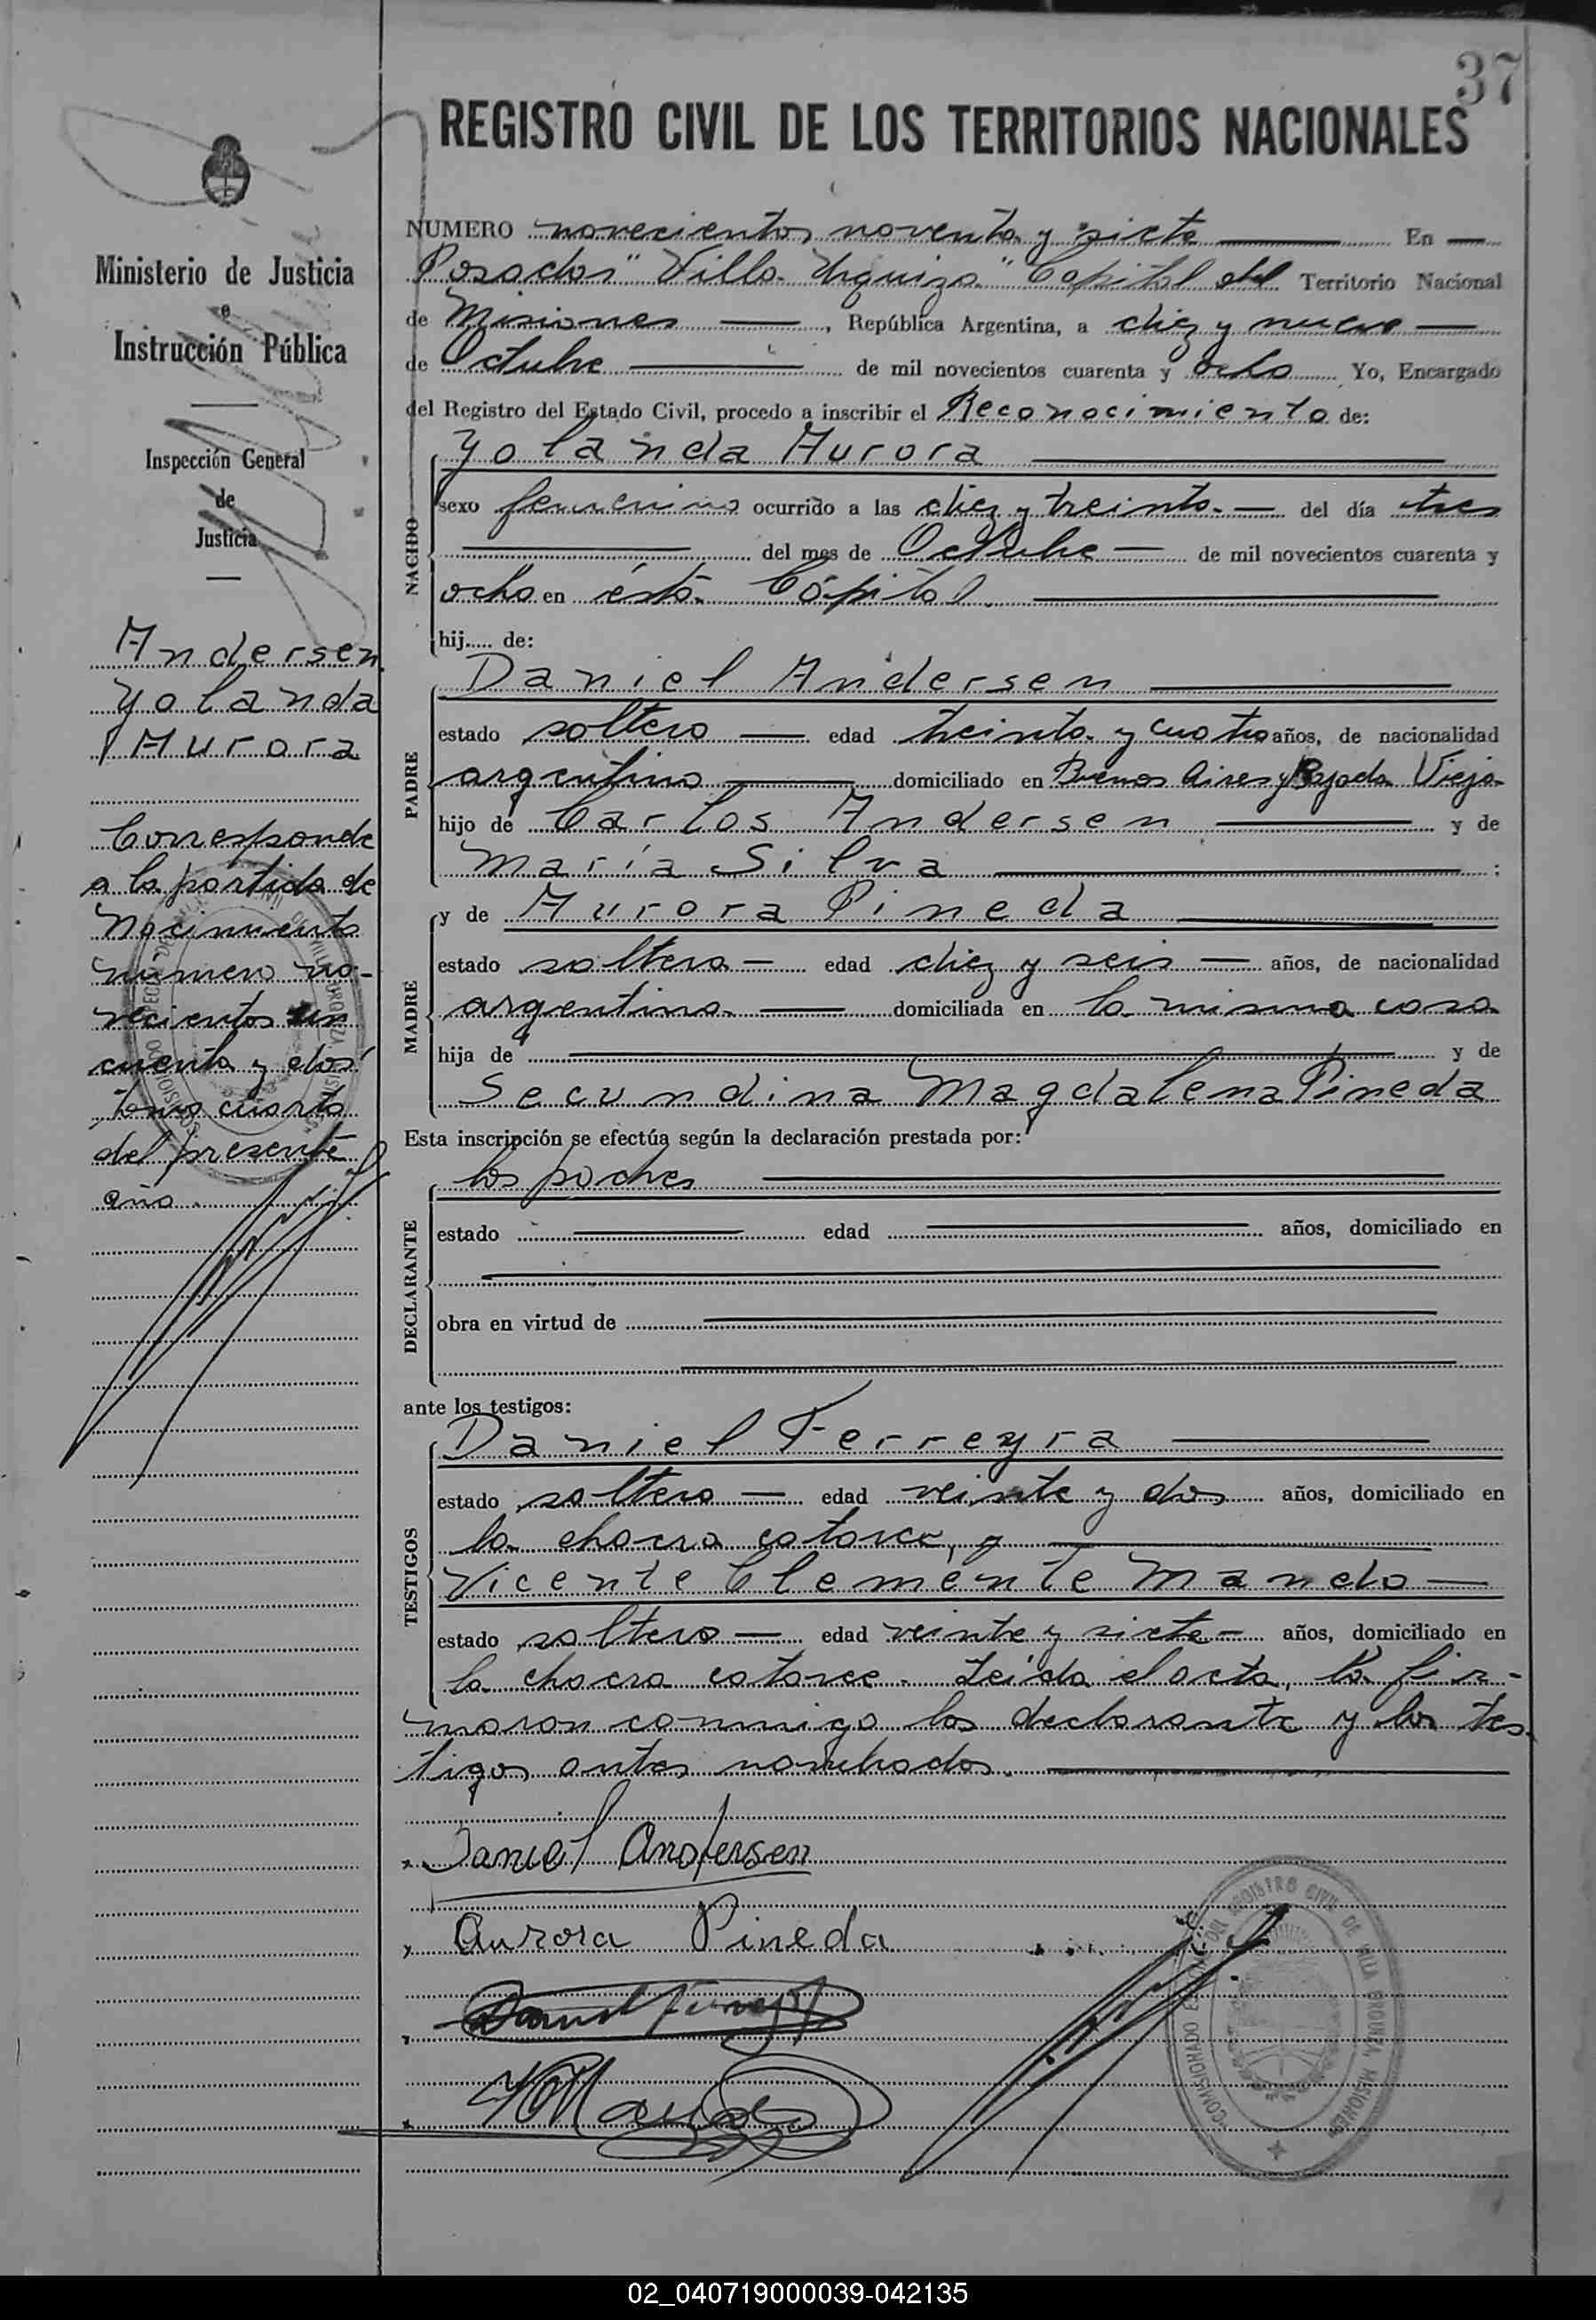 37
REGISTRO CIVIL DE LOS TERRITORIOS NACIONALES
Ministerio de Justicia
e
Instrucción Pública
Inspección General
de
Justicia
Andersen
Yolanda
Aurora
Corresponde
a la partida de
Nacimiento
número no-
vecientos cin
cuenta y dos
tomo cuarto
del presente
año.
NUMERO novecientos noventa y siete En
Posadas "Villa Urquiza" Capital del Territorio Nacional
de Misiones, República Argentina, a diez y nueve
de Octubre de mil novecientos cuarenta y ocho Yo, Encargado
del Registro del Estado Civil, procedo a inscribir el Reconocimiento de:
NACIDO
Yolanda Aurora
sexo femenino ocurrido a las diez y treinta. del día tres
del mes de Octubre de mil novecientos cuarenta y
ocho en ésta Cápital.
hij..... de:
PADRE
Daniel Andersen
estado soltero edad treinta y cuatro años, de nacionalidad
argentino domiciliado en Buenos Aires y Bajada Vieja
hijo de Carlos Andersen y de
María Silva ;
MADRE
y de Aurora Pineda
estado soltera edad diez y seis años, de nacionalidad
argentina domiciliada en la misma casa
hija de y de
Secundina Magdalena Pineda
Esta inscripción se efectúa según la declaración prestada por:
DECLARANTE
los padres
estado edad años, domiciliado en
obra en virtud de
ante los testigos:
TESTIGOS
Daniel Ferreyra
estado soltero edad veinte y dos años, domiciliado en
la chacra catorce, y
Vicente Clemente Mando
estado soltero edad veinte y siete años, domiciliado en
la chacra catorce. Leída el acta, la fir-
maron conmigo los declarante y los tes-
tigos antes nombrados.
Daniel Andersen
Aurora Pineda
COMISIONADO DEL REGISTRO CIVIL DE VILLA URQUIZA, MISIONES
02_040719000039-042135